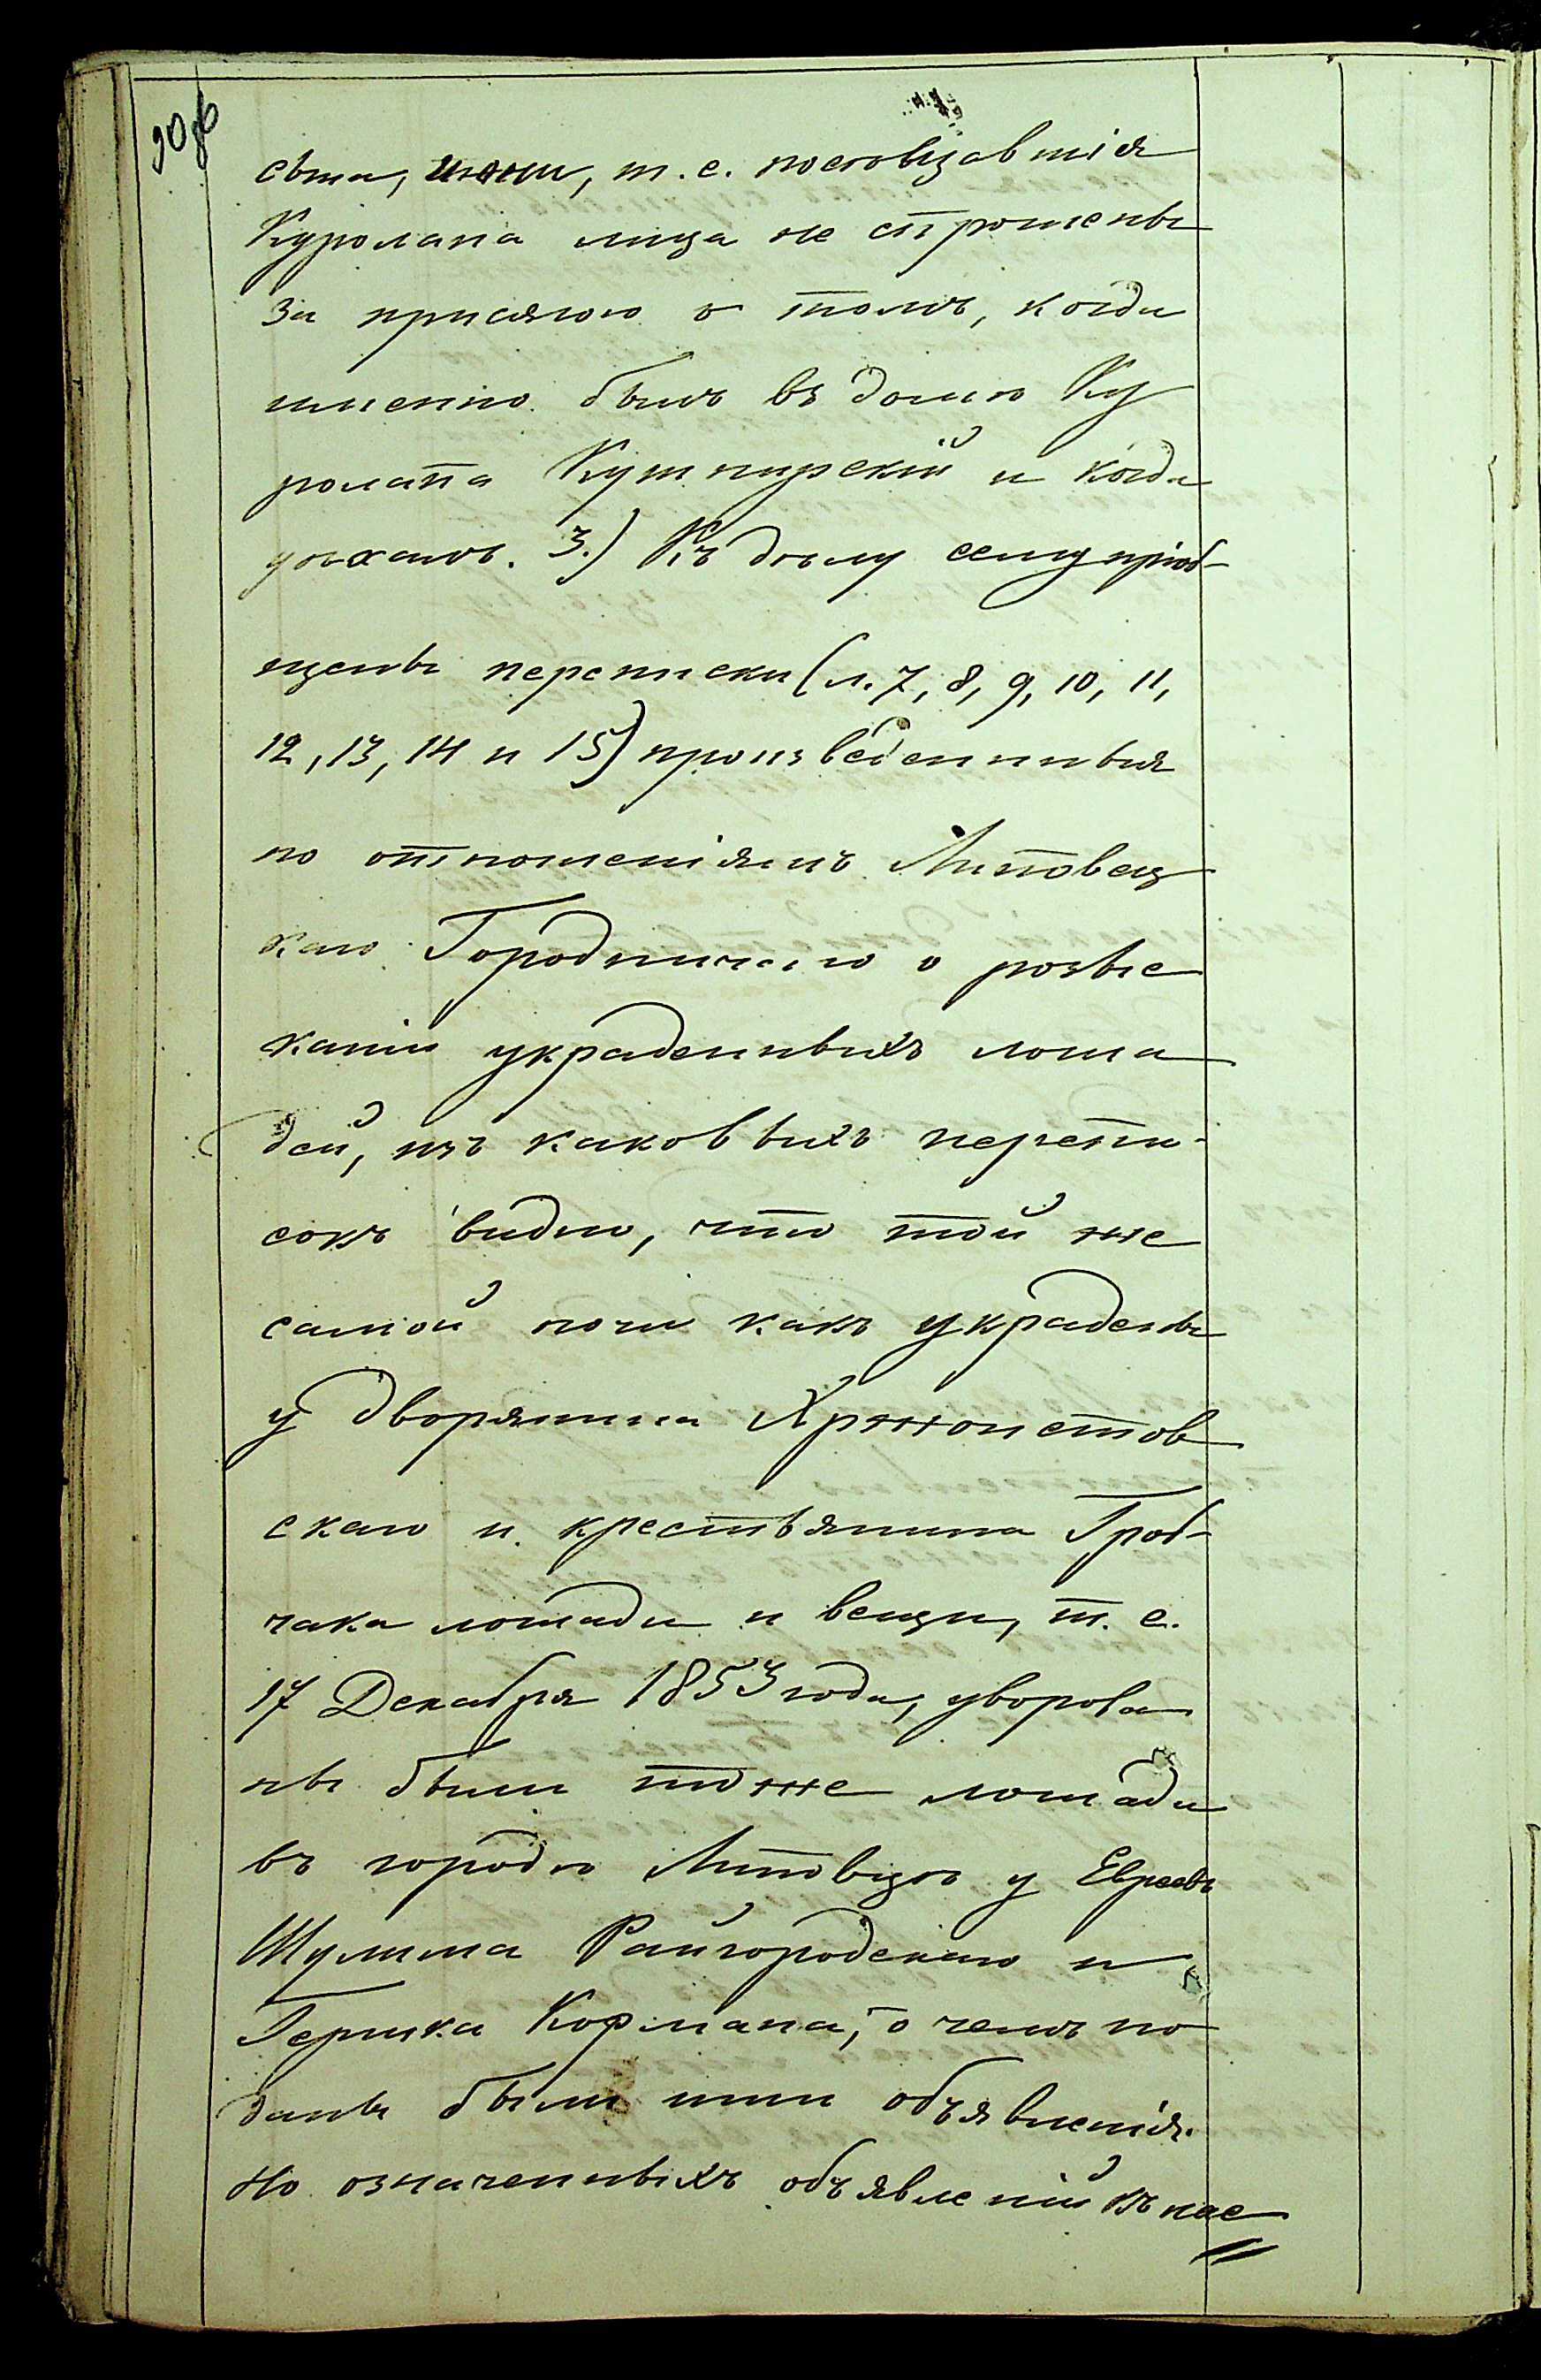 90 об
сѣта, т. е. посовѣщавшія
Куролапа лица не спрошены
за присягою о томъ, когда
именно былъ въ домѣ Ку
ролапа Кушнирскій и когда
уѣхалъ. 3.) Къ дѣлу сему пріоб-
щены переписки (л. 7, 8, 9, 10, 11,
12, 13, 14 и 15) произведенныя
по отношеніямъ Липовец
каго Городничаго о розыс
каніи украденныхъ лоша
дей, изъ каковыхъ перепи-
сокъ видно, что той же
самой ночи какъ украдены
у дворянина Хржонстов
скаго и крестьянина Гроб-
чака лошади и вещи, т. е.
17 Декабря 1853 года, уворова
ны были тоже лошади
въ городѣ Липовцѣ у Евреевъ
Шулима Райгородскаго и
Гершка Кормана, о чемъ по
даны были ими объявленія.
Но означенныхъ объявленій къ нас